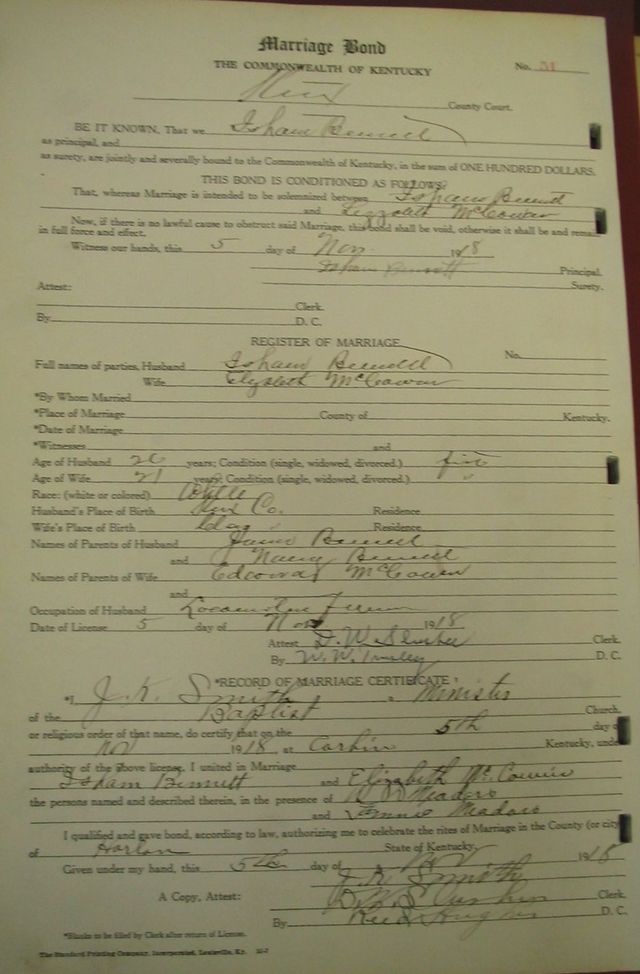 Marriage Bond
THE COMMONWEALTH OF KENTUCKY
No. 51
Knox County Court.
BE IT KNOWN, That we Isham Bennett
as principal, and
as surety, are jointly and severally bound to the Commonwealth of Kentucky, in the sum of ONE HUNDRED DOLLARS.
THIS BOND IS CONDITIONED AS FOLLOWS:
That, whereas Marriage is intended to be solemnized between Isham Bennett
and McCowen
Now, if there is no lawful cause to obstruct said Marriage, this bond shall be void, otherwise it shall be and remain
in full force and effect.
Witness our hands, this 5 day of Nov 1918
Isham Bennett Principal.
Attest: Surety.
Clerk.
By D. C.
REGISTER OF MARRIAGE
No.
Full names of parties, Husband Isham Bennett
Wife McCowen
*By Whom Married
*Place of Marriage County of Kentucky.
*Date of Marriage
*Witnesses and
Age of Husband 26 years; Condition (single, widowed, divorced.) first
Age of Wife 21 years; Condition (single, widowed, divorced.) "
Race: (white or colored) White
Husband's Place of Birth Knox Co. Residence
Wife's Place of Birth Clay " Residence
Names of Parents of Husband Bennett
and Nancy Bennett
Names of Parents of Wife Edward McCowen
and
Occupation of Husband Locomotive Fireman
Date of License 5 day of Nov 1918
Attest D. W. Slusher Clerk.
By W. W. Tinsley D. C.
*RECORD OF MARRIAGE CERTIFICATE
*I, J. K. Smith, a Minister
of the Baptist Church,
or religious order of that name, do certify that on the 5th day of
Nov 1918, at Corbin Kentucky, under
authority of the above license, I united in Marriage
Isham Bennett and Elizabeth McCowen
the persons named and described therein, in the presence of Meadors
and Fannie Meadors
I qualified and gave bond, according to law, authorizing me to celebrate the rites of Marriage in the County (or city)
of Harlan State of Kentucky.
Given under my hand, this 5th day of Nov 1918
J. K. Smith
A Copy, Attest: D. W. Slusher Clerk.
By D. C.
*Blanks to be filed by Clerk after return of License.
The Standard Printing Company, Incorporated, Louisville, Ky.